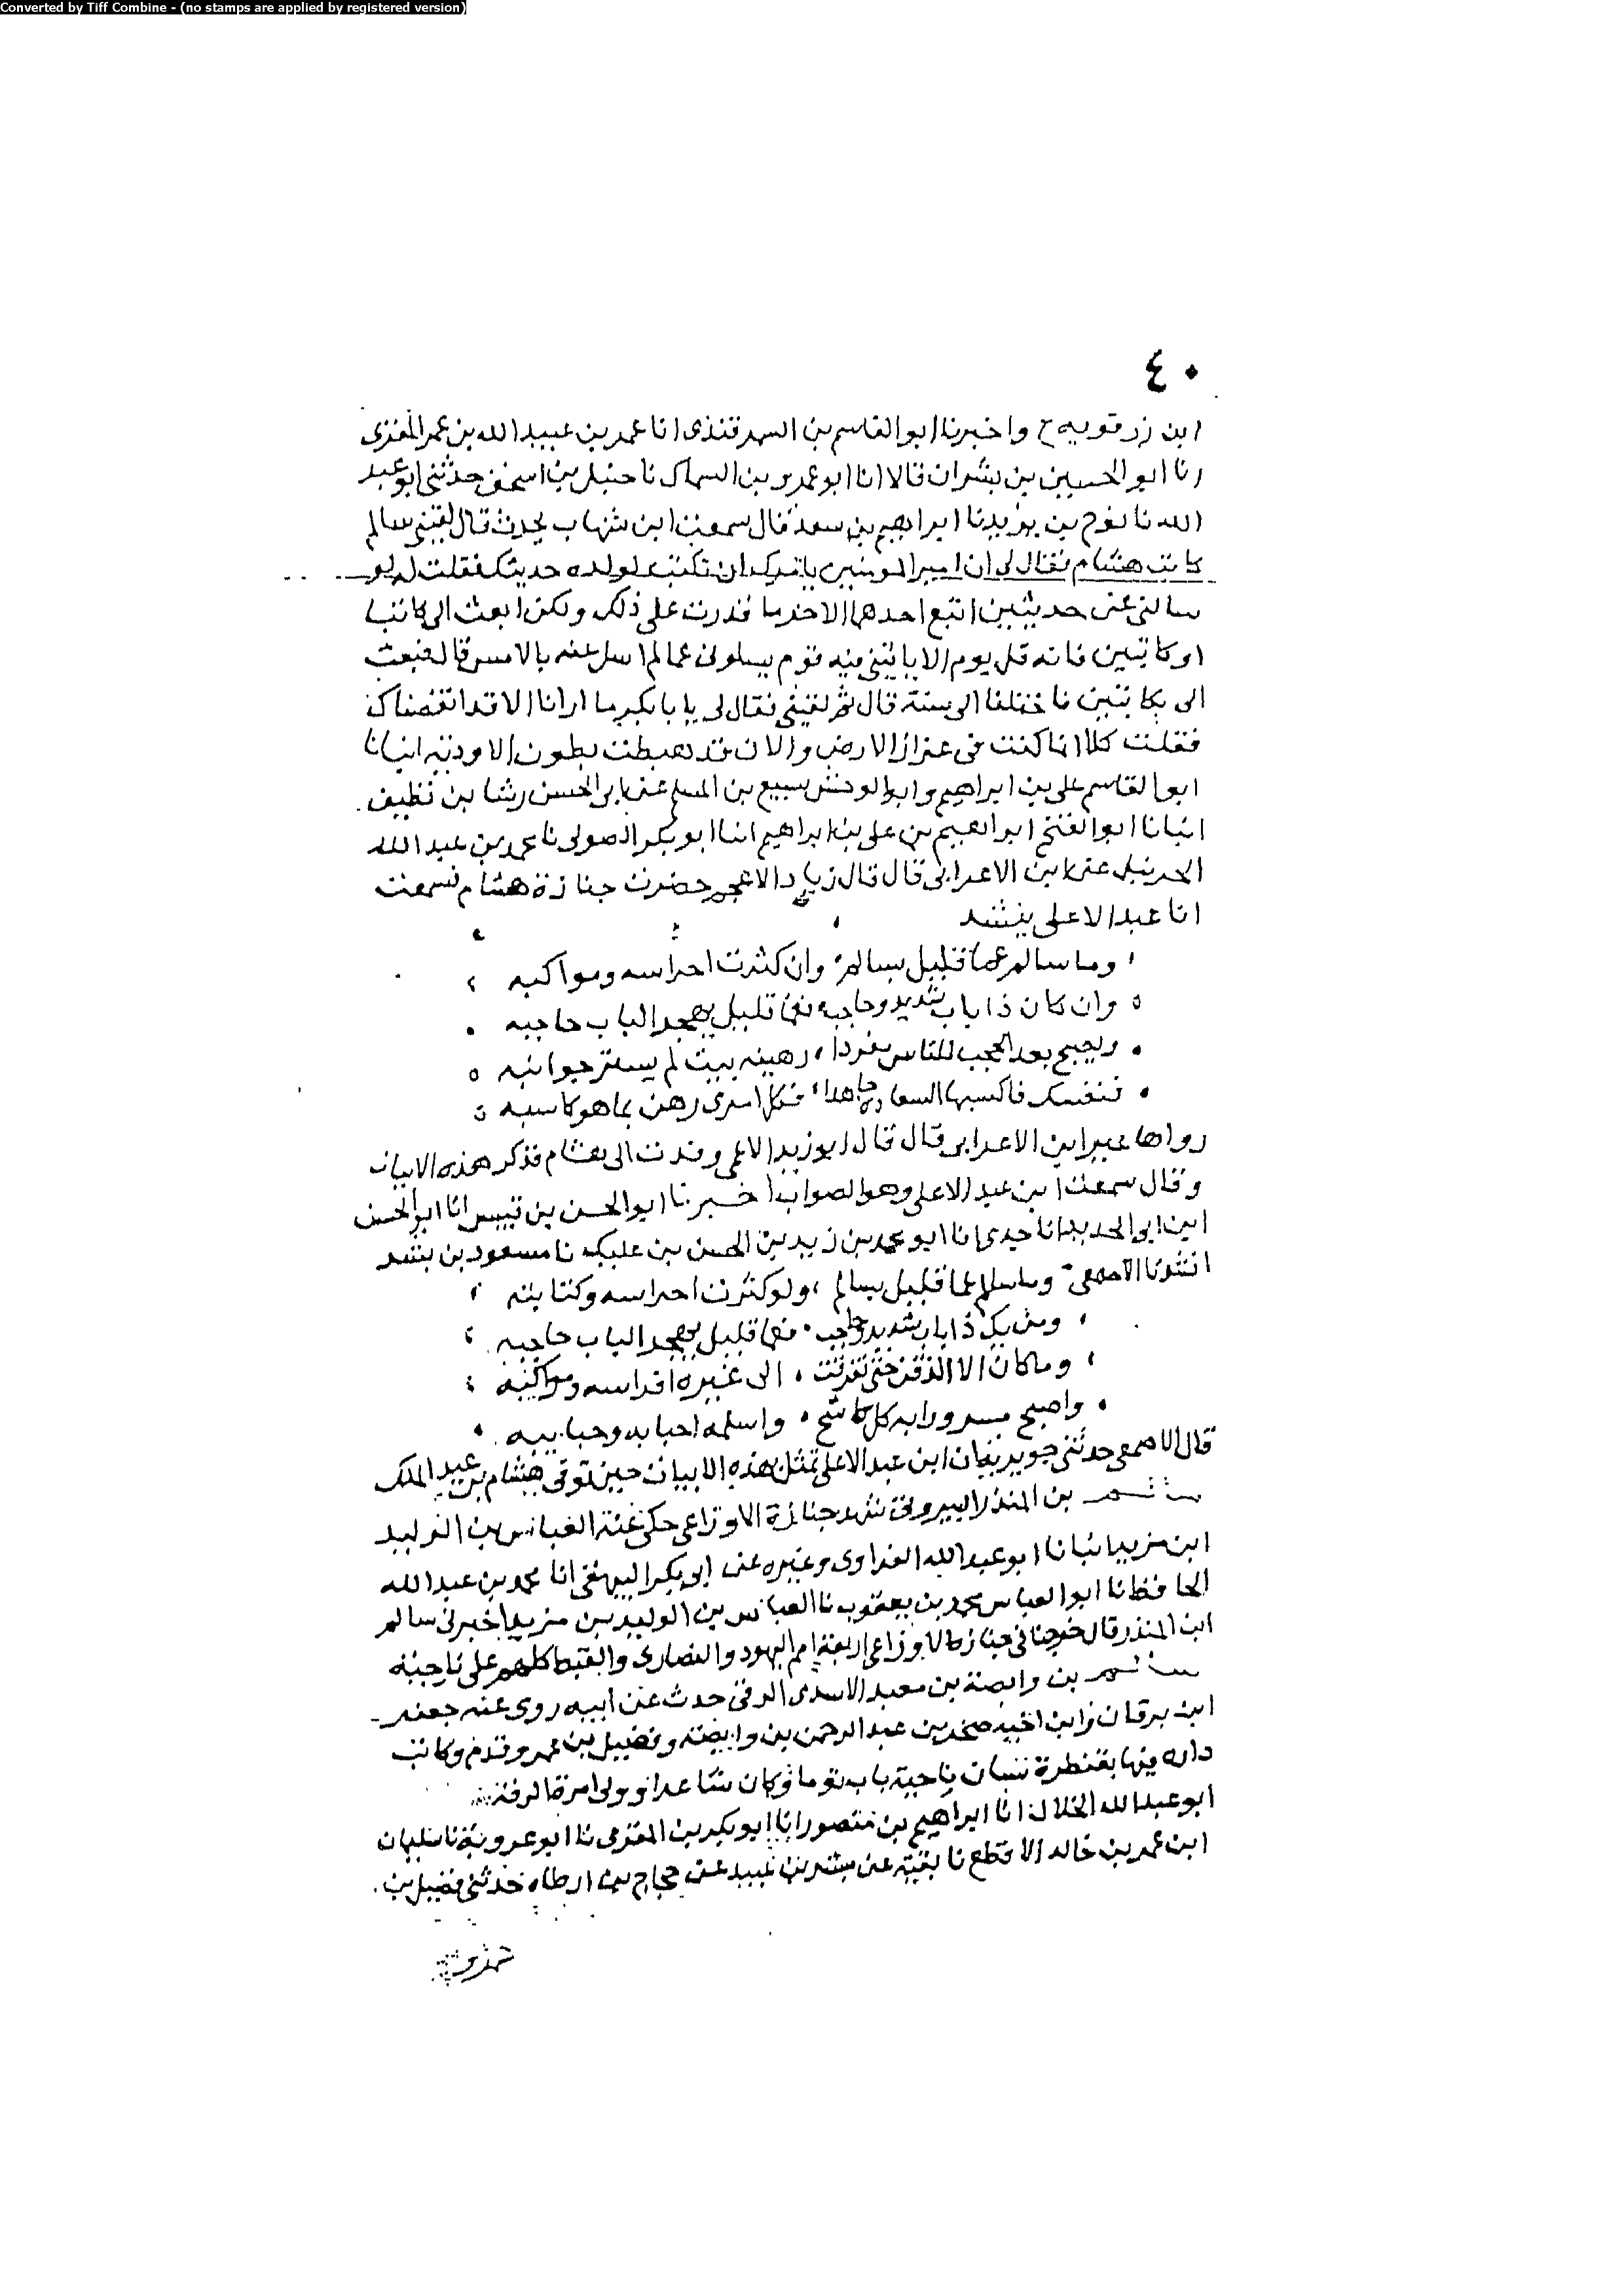 Converted by Tiff Combine - (no stamps are applied by registered version)
٤٠
ابن زرقويه ح واخبرنا ابو القاسم بن السمرقندى انا عمر بن عبيد الله بن عمر المقرى
انا ابو الحسين بن بشران قالا انا ابو عمرو بن السماك نا حنبل بن اسحق حدثنى ابو عبد
الله نا نوح بن يزيد نا ابراهيم بن سعد قال سمعت ابن شهاب يحدث قال لقينى سالم
كاتب هشام فقال لى ان امير المومنين يامرك ان تكتب لولده حديثك فقلت له لو
سالتنى عن حديثين اتبع احدهما الاخر ما قدرت على ذلك ولكن ابعث الى كاتبا
او كاتبين فانه قل يوم الا ياتينى فيه قوم يسلونى عما لم اسل عنه بالامس قال فبعث
الى بكاتبين فاختلفا الى سنة قال ثم لقينى فقال لى يا با بكر ما ارانا الا قد انفضناك
فقلت كلا انما كنت فى عزاز الارض والان قد هبطت بطون الاودية انبانا
ابو القاسم على بن ابراهيم وابو الوحش سبيع بن المسلم عن ابى الحسن رشا بن نظيف
انبانا ابو الفتح ابراهيم بن على بن ابراهيم انا ابو بكر الصولى نا محمد بن عبد الله
الحزنبل عن ابن الاعرابى قال قال زياد الاعجم حضرت جنازة هشام فسمعت
انا عبد الاعلى ينشد
وما سالم عما قليل بسالم وان كثرت احراسه ومواكبه
وان كان ذا باب شديد وحاجب فعما قليل يهجر الباب حاجبه
ويصبح بعد الحجب للناس مفردا رهينه بيت لم يستر جوانبه
فنفسك فاكسبها السعادة جاهدا فكل امرى رهن بما هو كاسبه
رواها غير ابن الاعرابى قال قال ابو زيد الاعلى وفدت الى هشام فذكر هذه الابيات
وقال سمعت ابن عبد الاعلى وهو الصواب اخبرنا ابو الحسن بن قبيس انا ابو الحسن
ابن ابو الحديد انا جدى انا ابو محمد بن زبر بن الحسن بن عليك نا مسعود بن بشر
انشدنا الاصمعى وما سالم عما قليل بسالم ولو كثرت احراسه وكتايبه
ومن يك ذا باب شديد وحاجب فعما قليل يهجر الباب حاجبه
وما كان الا الدفن حتى تفرقت الى غيره افراسه ومواكبه
واصبح مسرورا به كل كاشح واسلمه احبابه وحبايبه
قال الاصمعى حدثنى جويرية ان ابن عبد الاعلى تمثل بهذه الابيات حين توفى هشام بن عبد الملك
سالم بن المنذر البيروتى شهد جنازة الاوزاعى حكى عنه العباس بن الوليد
ابن مزيد انبانا ابو عبد الله الفراوى وغيره عن ابى بكر البيهقى انا محمد بن عبد الله
الحافظ نا ابو العباس محمد بن يعقوب نا العباس بن الوليد بن مزيد اخبرنى سالم
ابن المنذر قال خرجنا فى جنازة الاوزاعى اربعة امم اليهود والنصارى والقبط كلهم على ناحيته
سالم بن وابصة بن معبد الاسدى الرقى حدث عن ابيه روى عنه جعفر
ابن برقان وابن اخيه صخر بن عبد الرحمن بن وابصة وفضيل بن عمرو وقدم وكانت
داره فيها بقنطرة سنان بناحية باب توما وكان شاعرا وولى امرة الرقة
ابو عبد الله الخلال انا ابراهيم بن منصور انا ابو بكر بن المقرى نا ابو عروبة نا سليمان
ابن عمر بن خالد الاقطع نا بقية عن مبشر بن عبيد عن حجاج بن ارطاه حدثنى فضيل بن
عمرو